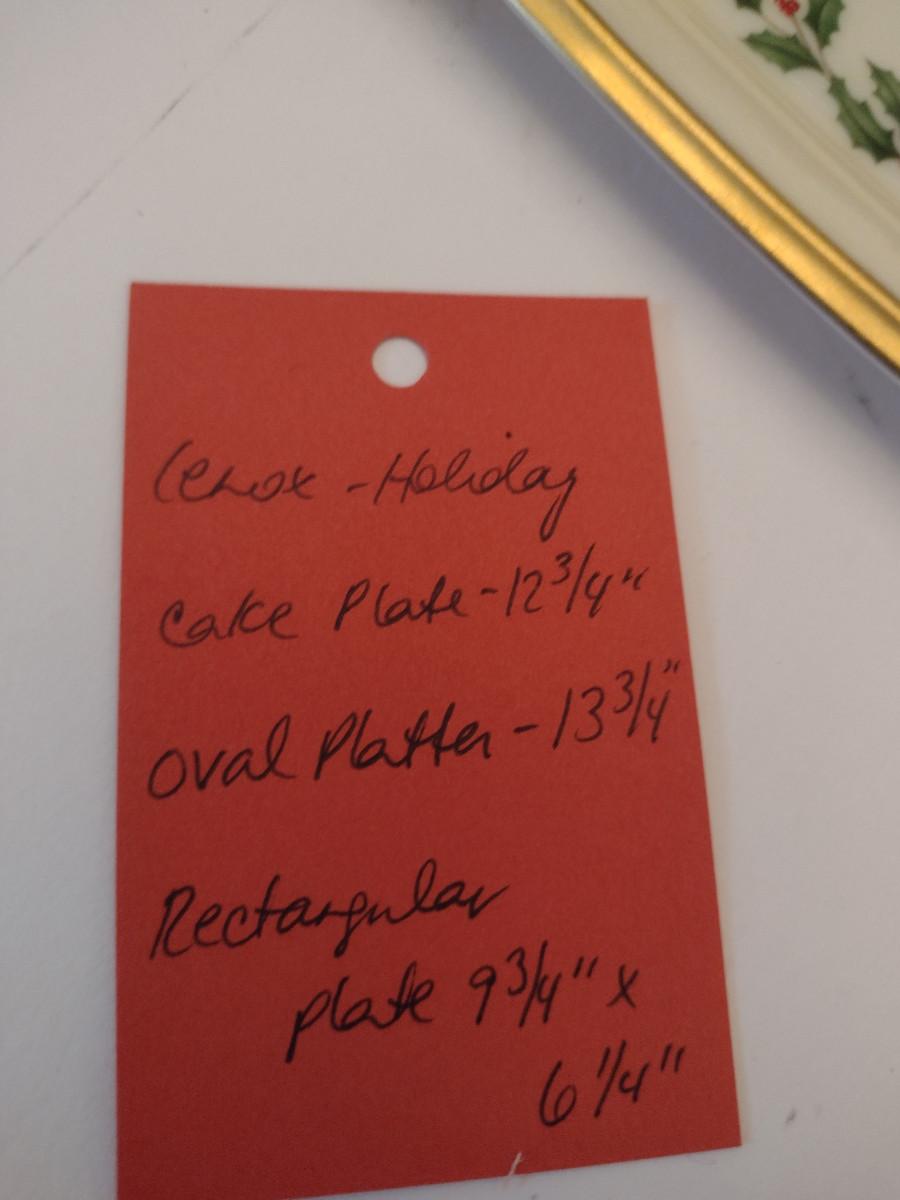 Lenox - Holiday
Cake Plate - 12 3/4"
Oval Platter - 13 3/4"
Rectangular
plate 9 3/4" x
6 1/4"